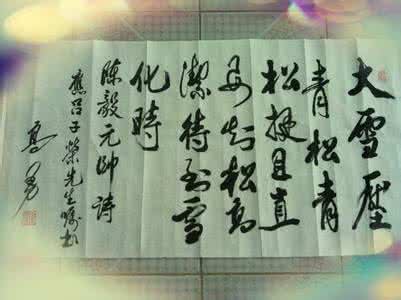 大雪壓
青松青
松挺且直
要知松高
潔待到雪
化時
陳毅元帥詩
應吕子榮先生嘱书